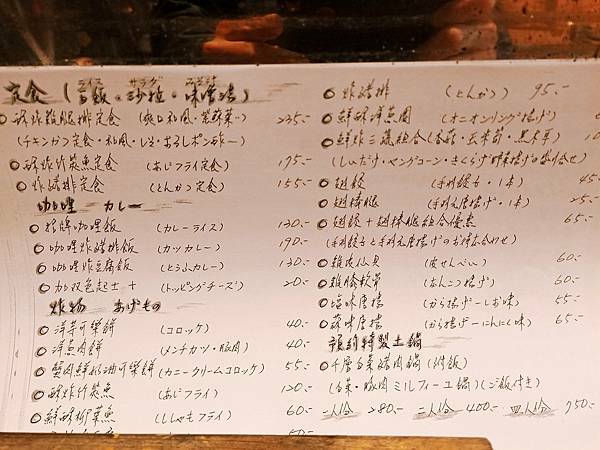 定食 (白飯・沙拉・味噌湯)
ライス サラダ みそ汁
酥炸雞腿排定食 (爽口和風・紫蘇葉~) 235.-
(チキンかつ定食・和風・しそ・おろしポン酢~)
酥炸竹莢魚定食 (あじフライ定食) 175.-
炸豬排定食 (とんかつ定食) 155.-
咖哩 カレー
招牌咖哩飯 (カレーライス) 130.-
咖哩炸豬排飯 (カツカレー) 190.-
咖哩炸豆腐飯 (とうふカレー) 130.-
加双色起士+ (トッピングチーズ) 20.-
炸物 あげもの
洋芋可樂餅 (コロッケ) 40.-
洋蔥肉餅 (メンチカツ・豚肉) 40.-
蟹肉鮮奶油可樂餅 (カニークリームコロッケ) 55.-
酥炸竹莢魚 (あじフライ) 120.-
鮮酥柳葉魚 (ししゃもフライ) 60.-
50.-
炸豬排 (とんかつ) 95.-
鮮酥洋蔥圈 (オニオンリング揚げ)
鮮炸三蔬組合 (香菇・玉米筍・黑木耳)
(しいたけ・ヤングコーン・きくらげ野菜揚げの盛り合せ)
翅餃 (手羽餃子・1本) 45
翅棒腿 (手羽元唐揚げ・1本) 25.-
翅餃+翅棒腿組合優惠 65.-
(手羽餃子と手羽元唐揚げのお持ち合わせ)
雞皮仙貝 (皮せんべい) 60.-
雞膝軟骨 (なんこつ揚げ) 60.-
塩味唐揚 (から揚げーしお味) 55.-
蒜味唐揚 (から揚げーにんにく味) 65.-
預約特製土鍋
千層白菜豬肉鍋 (附飯)
(白菜・豚肉ミルフィーユ鍋)(ご飯付き)
一人份 280.- 二人份 400.- 四人份 750.-